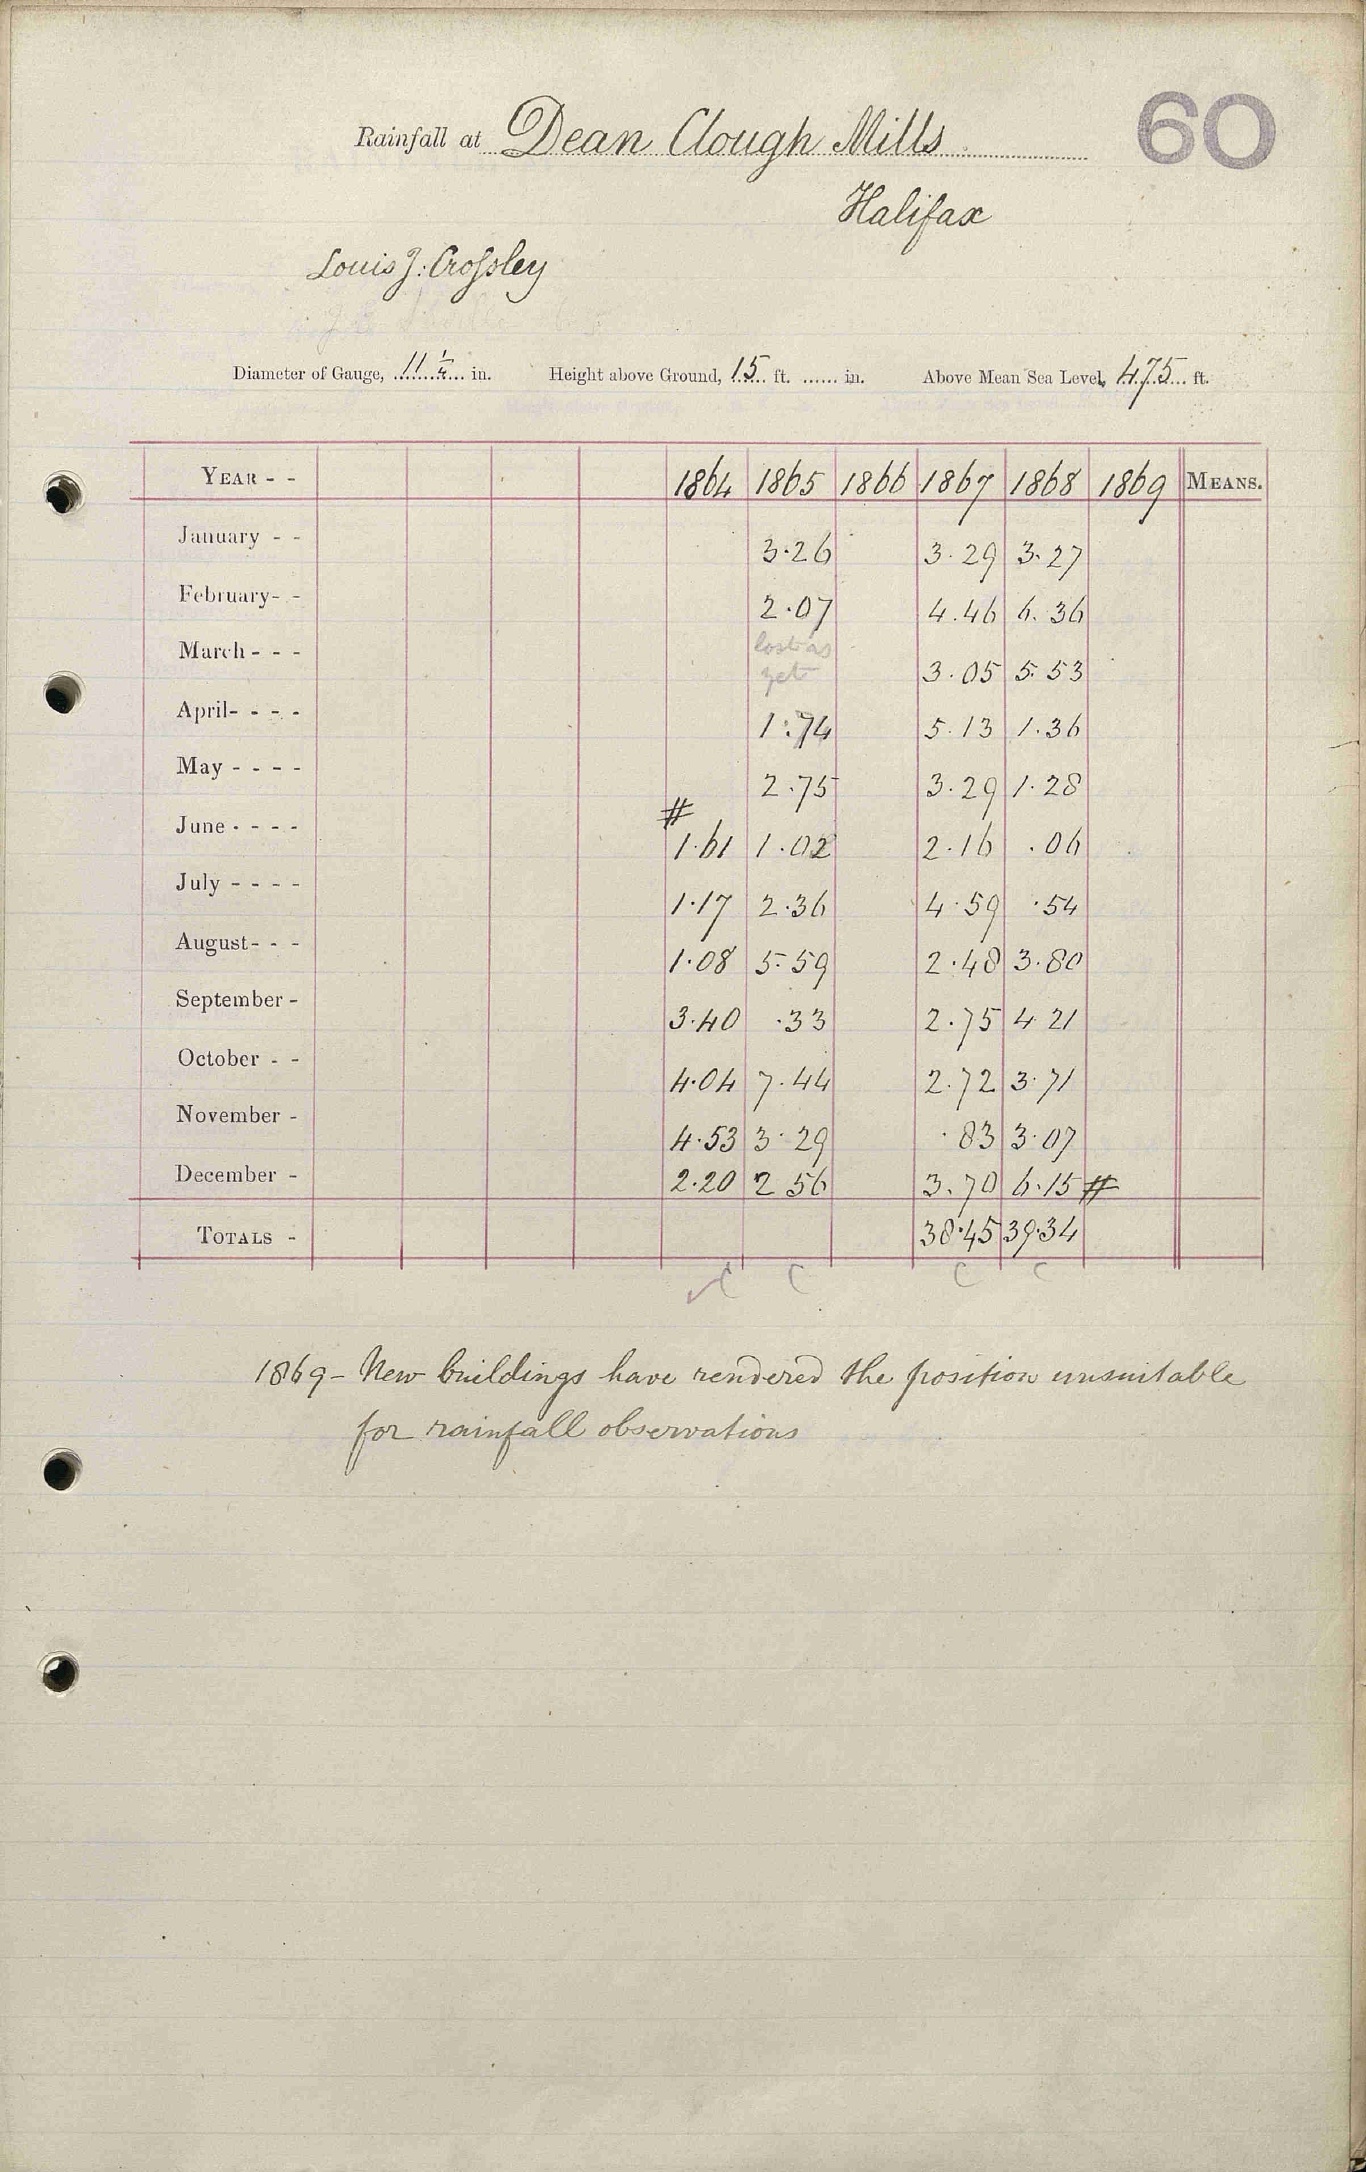 60
Rainfall at Dean Clough Mills
Halifax
Louis J: Crossley
Diameter of Gauge, 11 1/4 in. Height above Ground, 15 ft. in. Above Mean Sea Level, 475 ft.
YEAR - - 1864 1865 1866 1867 1868 1869 MEANS.
January - - 3.26 3.29 3.27
February - - 2.07 4.46 6.36
March - - - lost as yet 3.05 5.53
April - - - - 1.74 5.13 1.36
May - - - - 2.75 3.29 1.28
June - - - - # 1.61 1.02 2.16 .06
July - - - - 1.17 2.36 4.59 .54
August - - - 1.08 5.59 2.48 3.80
September - 3.40 .33 2.75 4 21
October - - 4.04 7.44 2.72 3.71
November - 4.53 3.29 .83 3.07
December - 2.20 2 56 3.70 6.15 #
TOTALS - 38.45 39.34
C C C C
1869 - New buildings have rendered the position unsuitable
for rainfall observations